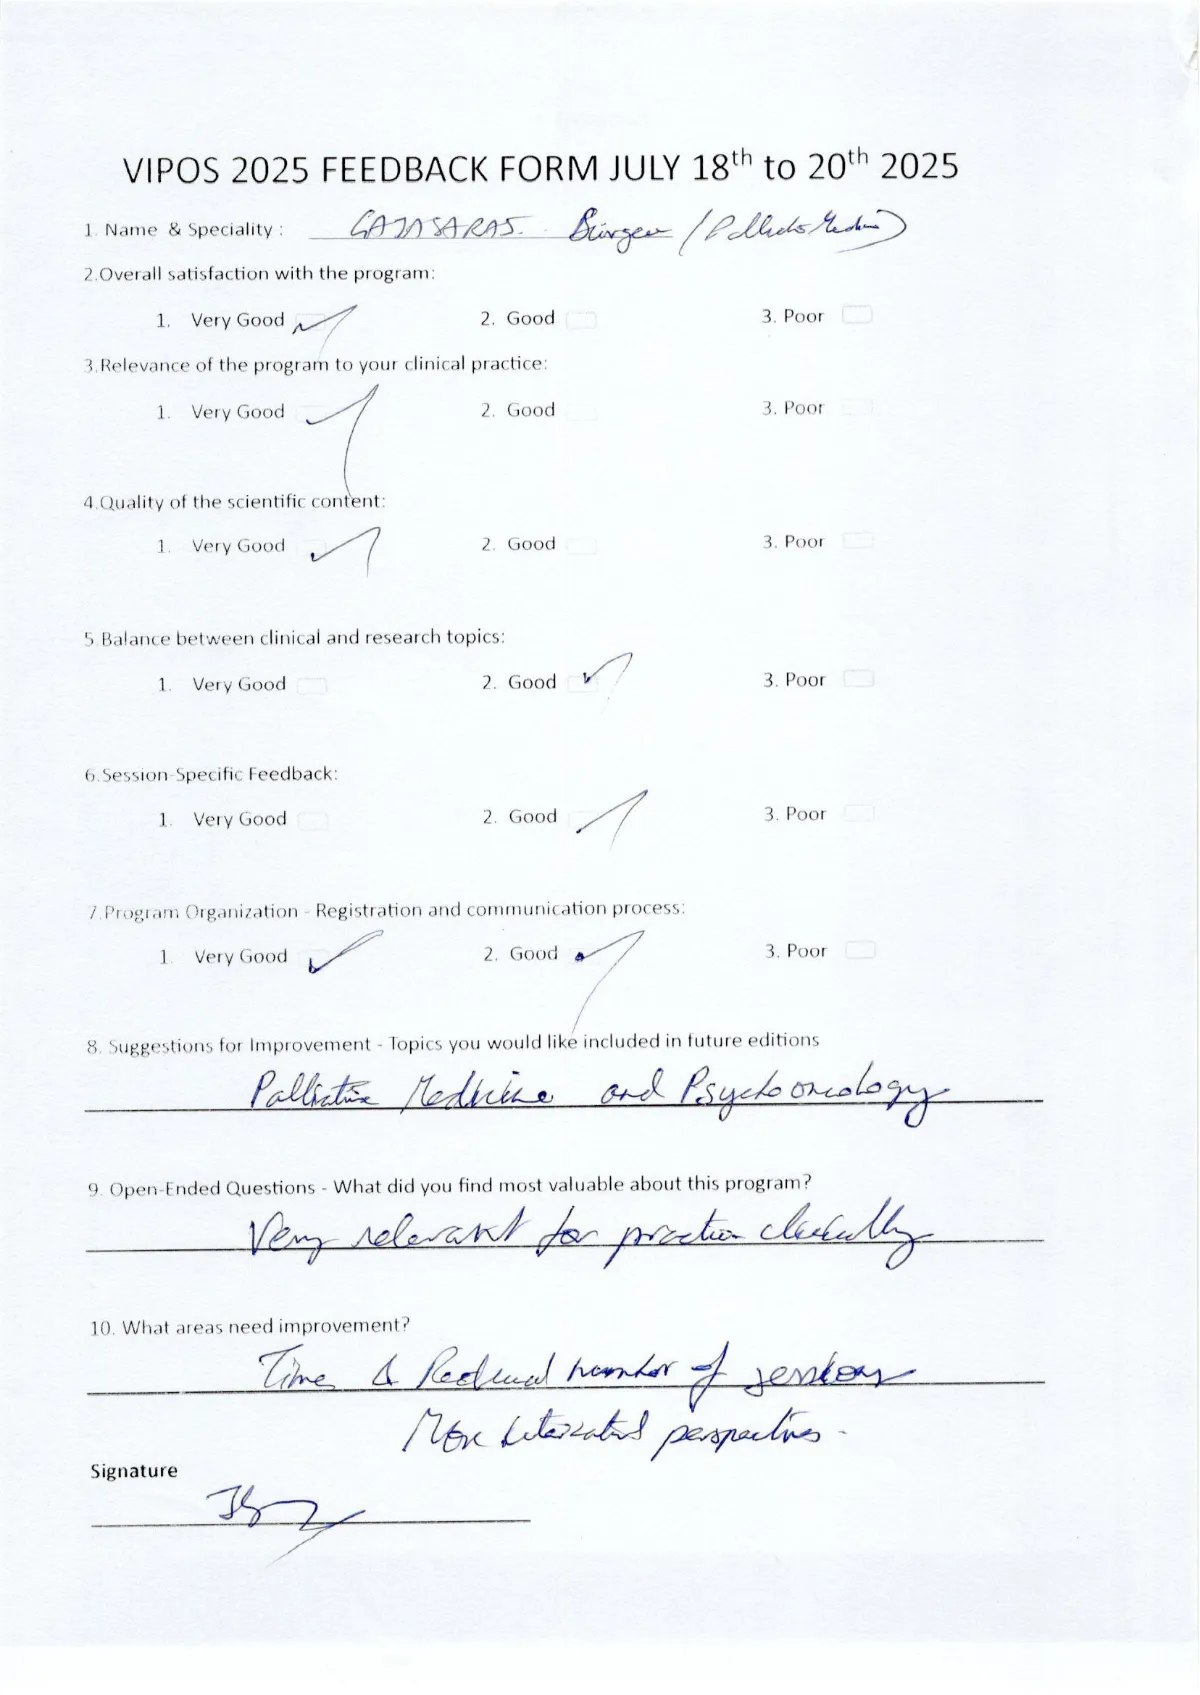 VIPOS 2025 FEEDBACK FORM JULY 18th to 20th 2025
1. Name & Speciality : (Palliative Medicine)
2.Overall satisfaction with the program:
1. Very Good 2. Good 3. Poor
3.Relevance of the program to your clinical practice:
1. Very Good 2. Good 3. Poor
4.Quality of the scientific content:
1. Very Good 2. Good 3. Poor
5.Balance between clinical and research topics:
1. Very Good 2. Good 3. Poor
6.Session-Specific Feedback:
1. Very Good 2. Good 3. Poor
7.Program Organization - Registration and communication process:
1. Very Good 2. Good 3. Poor
8. Suggestions for Improvement - Topics you would like included in future editions
Palliative Medicine and Psychooncology
9. Open-Ended Questions - What did you find most valuable about this program?
Very relevant for practice clinically
10. What areas need improvement?
Time & Reduced number of sessions
More perspectives.
Signature